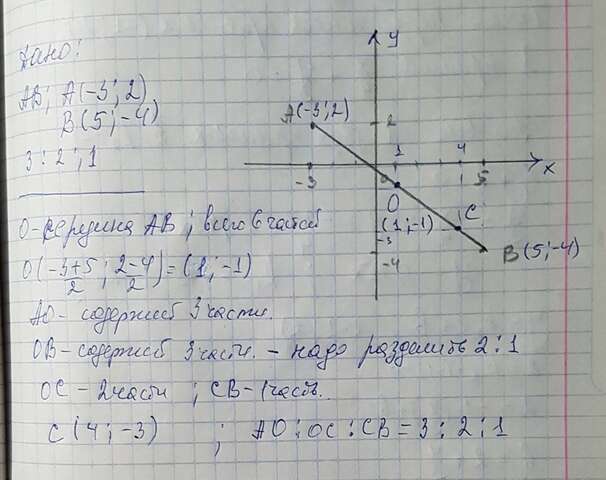 Дано:
AB; A(-3;2)
B(5;-4)
3:2;1
O-середина AB; всего 6 частей
O(-3+5/2; 2-4/2)=(1;-1)
AO- содержит 3 части.
OB-содержит 3 части. - надо разделить 2:1
OC - 2 части; CB-1 часть.
C(4;-3) ; AO:OC:CB=3:2:1
y
A(-3;2)
2
1
4
-3
0
5
x
O
(1;-1)
C
-3
-4
B(5;-4)